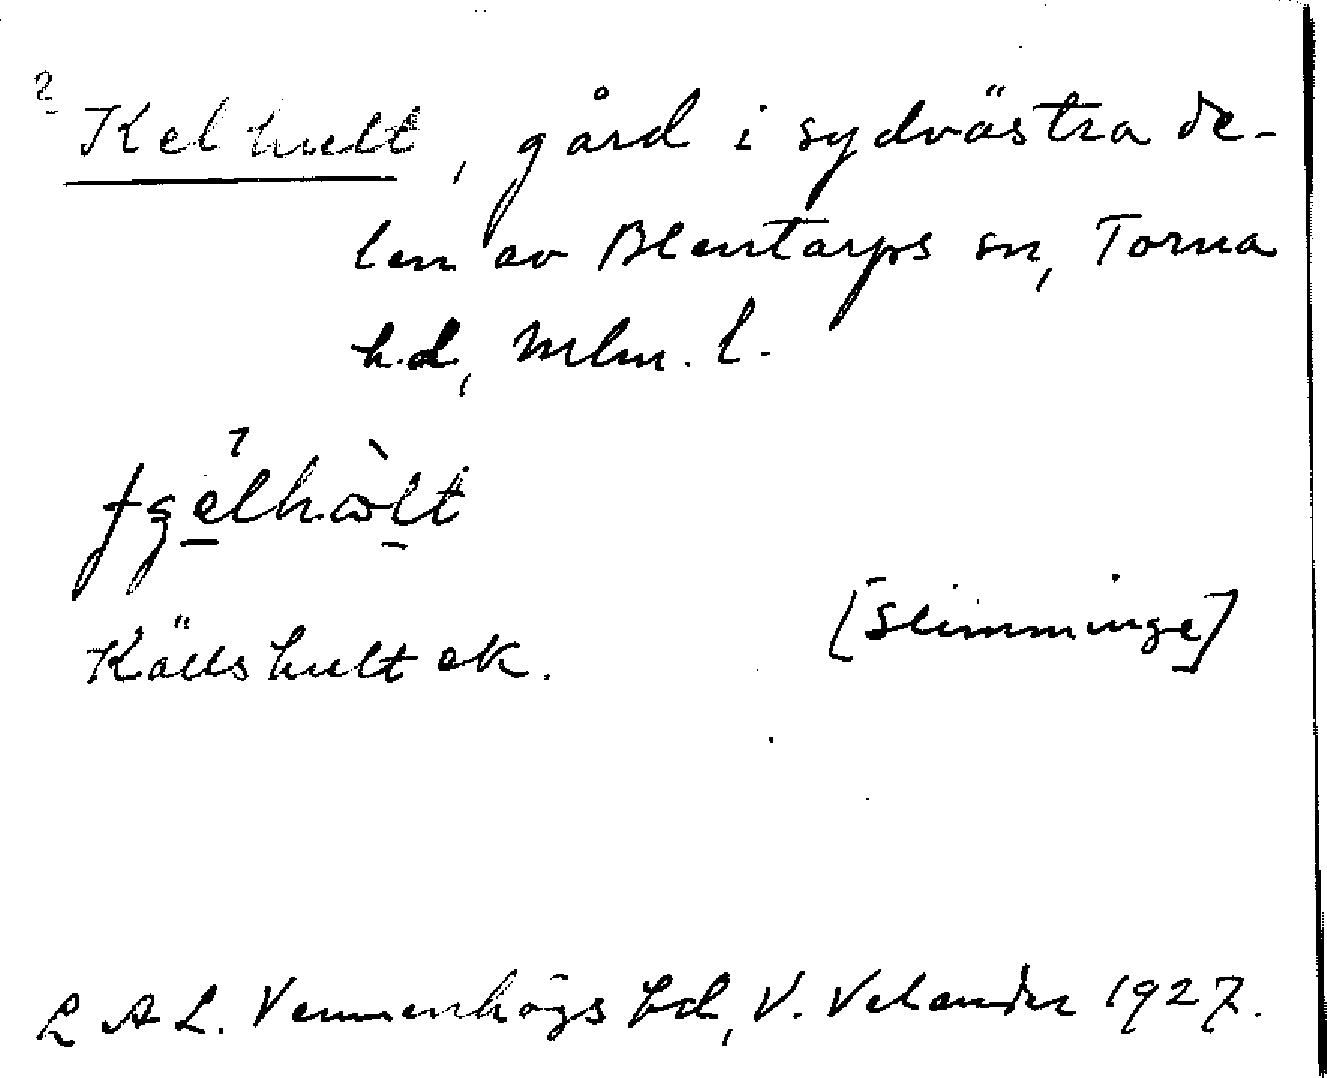 ? Kelhult, gård i sydvästra de-
len av Blentarps sn, Torna
hd, Mlm. l.
Källshult ek.
[Slimminge]
L A L. Vemmenhögs hd, V. Velander 1927.